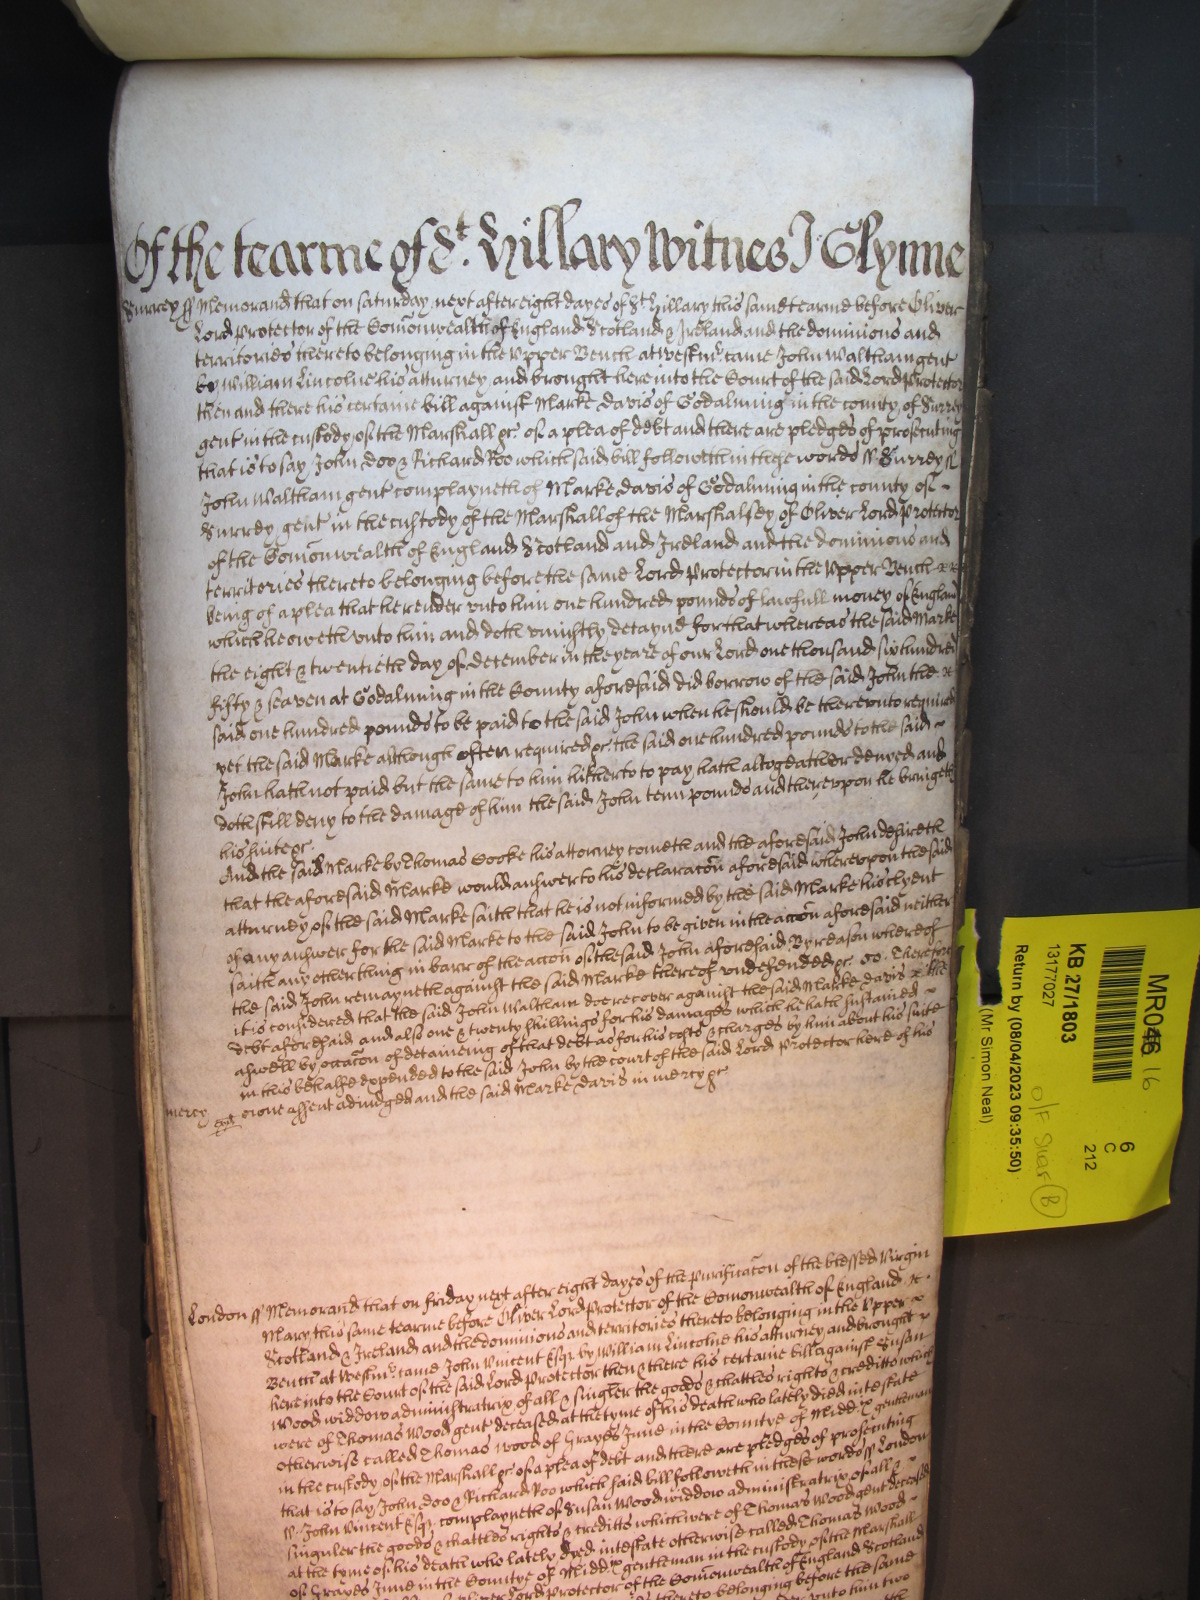 Of the tearme of St. Hillary Witnes J Glynne
Surrey ss Memorand that on saturday next after eight dayes of St. Hillary this same tearme before Oliver
Lord Protector of the Comonwealth of England Scotland & Ireland and the dominions and
territories thereto belonging in the Upper Bench at Westmr. came John Waltham gent
by William Lincolne his atturney and brought here into the Court of the said Lord Protector
then and there his certaine bill against Marke Davis of Godalming in the county of Surrey
gent in the custody of the Marshall &c of a plea of debt and there are pledges of prosecuting
that is to say John Doo & Richard Roo which said bill followeth in these words ss Surrey ss
John Waltham gent complayneth of Marke Davis of Godalming in the county of
Surrey gent in the custody of the Marshall of the Marshalsey of Oliver Lord Protector
of the Comonwealth of England Scotland and Ireland and the dominions and
territories thereto belonging before the same Lord Protector in the Upper Bench
being of a plea that he render unto him one hundred pounds of lawfull money of England
which he oweth unto him and doth uniustly detayne for that whereas the said Marke
the eight & twentieth day of December in the yeare of our Lord one thousand six hundred
fifty & seaven at Godalming in the County aforesaid did borrow of the said John the
said one hundred pounds to be paid to the said John when he should be thereunto required
yet the said Marke although often required &c the said one hundred pounds to the said
John hath not paid but the same to him hitherto to pay hath altogeather denyed and
doth still deny to the damage of him the said John tenn pounds and thereupon he bringeth
his suite &c.
And the said Marke by Thomas Cooke his attorney cometh and the aforesaid John desireth
that the aforesaid Marke would answer to his declaracon aforesaid whereupon the said
atturney of the said Marke saith that he is not informed by the said Marke his clyent
of any answer for the said Marke to the said John to be given in the accon aforesaid neither
saith any other thing in barr of the accon of the said John aforesaid By reason whereof
the said John remayneth against the said Marke thereof undefended &c. Therefore
it is considered that the said John Waltham doe recover against the said Marke Davis the
debt aforesaid and also one & twenty shillings for his damages which he hath sustained
aswell by occacon of detaineing of that debt as for his costs & charges by him about his suite
in this behalfe expended to the said John by the court of the said Lord Protector here of his
mercy owne assent adiudged and the said Marke Davis in mercy &c
London ss Memorand that on friday next after eight dayes of the Purificacon of the blessed Virgin
Mary this same tearme before Oliver Lord Protector of the Comonwealth of England
Scotland & Ireland and the dominions and territories thereto belonging in the Upper
Bench at Westmr. came John Vincent Esqr by William Lincolne his atturney and brought
here into the Court of the said Lord Protector then & there his certaine bill against Susan
Wood widdow administratrix of all & singler the goods & chattles rights & creditts which
were of Thomas Wood gent deceased at the tyme of his death who lately died intestate
otherwise called Thomas Wood of Grayes Inne in the Countye of Middx gentleman
in the custody of the Marshall &c of a plea of debt and there are pledges of prosecuting
that is to say John Doo & Richard Roo which said bill followeth in these words ss London
ss John Vincent Esqr complayneth of Susan Wood widdow administratrix of all &
singuler the goods & chattles rights & creditts which were of Thomas Wood gent deceased
at the tyme of his death who lately dyed intestate otherwise called Thomas Wood
of Grayes Inne in the Countye of Middx gentleman in the custody of the Marshall
Oliver Lord Protector of the Comonwealth of England Scotland
thereto belonging before the same
unto him two
MR046 16
KB 27/1803
13177027
Return by (08/04/2023 09:35:50)
(Mr Simon Neal)
6
C
212
O/F Shelf B